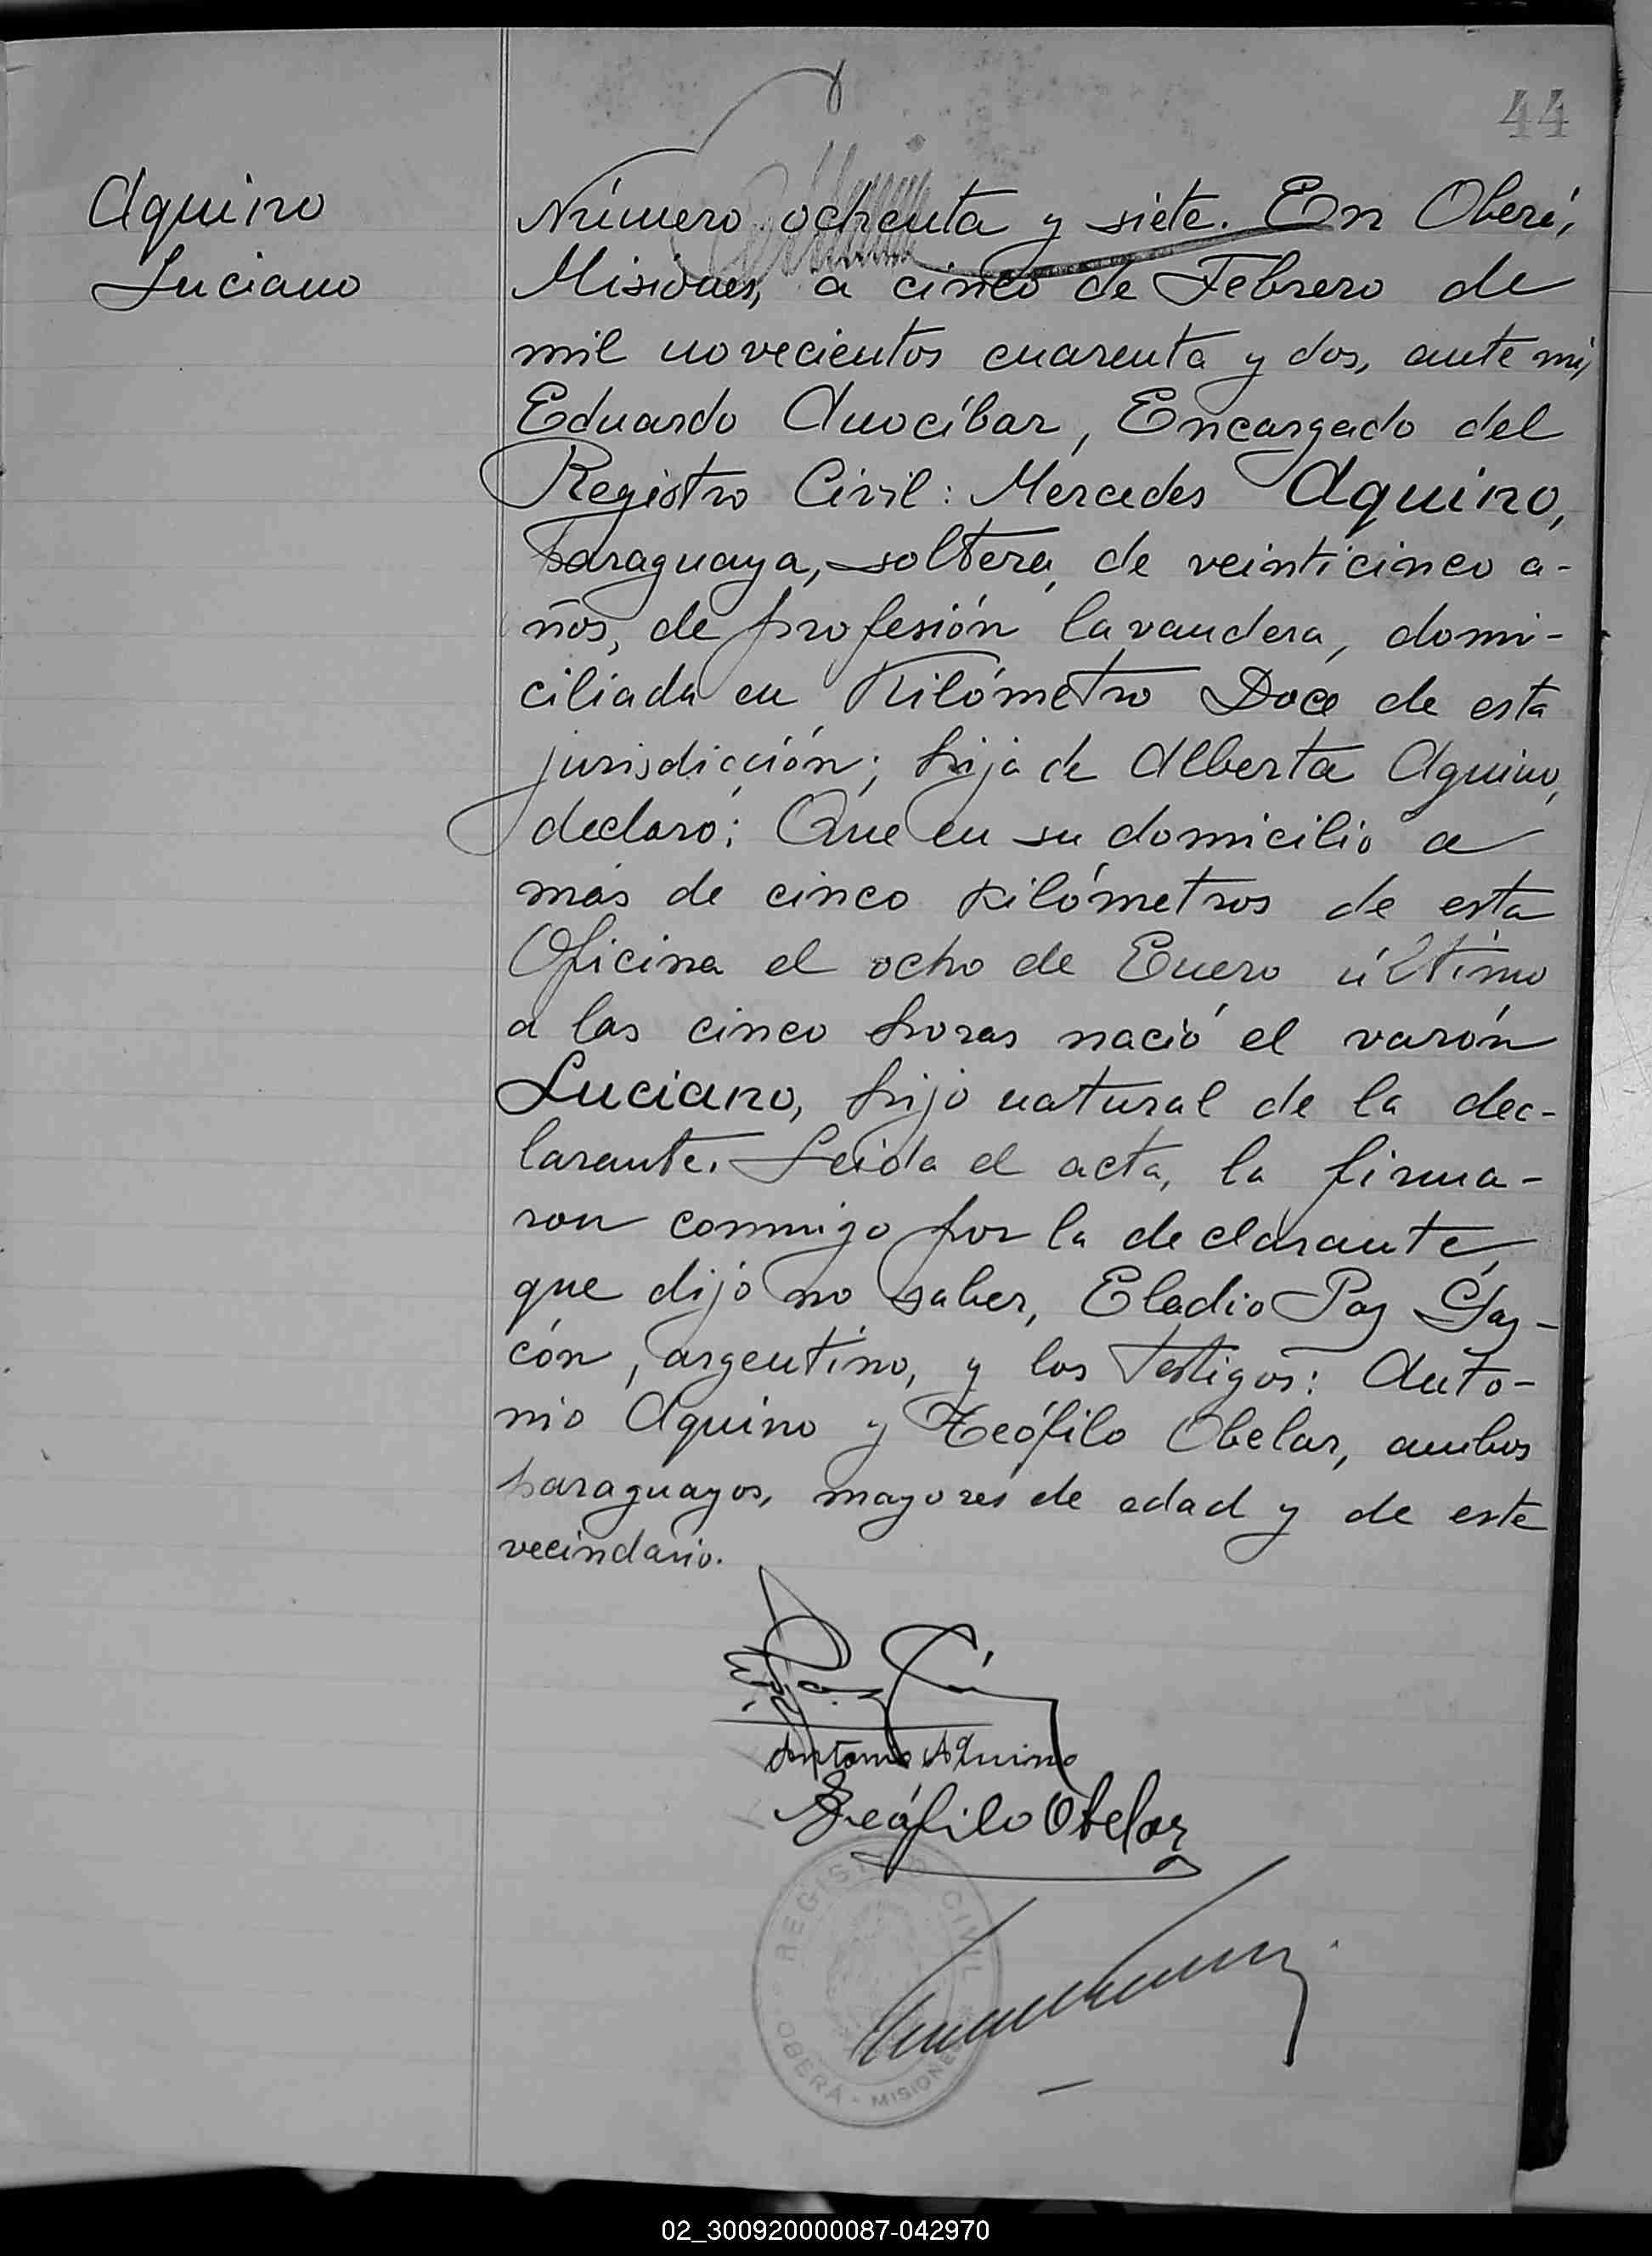 44
Aquino
Luciano
Número ochenta y siete. En Oberá,
Misiones, a cinco de Febrero de
mil novecientos cuarenta y dos, ante mi,
Eduardo Anocíbar, Encargado del
Registro Civil: Mercedes Aquino,
paraguaya, soltera, de veinticinco a-
ños, de profesión lavandera, domi-
ciliada en Kilómetro Doce de esta
jurisdicción; hija de Alberta Aquino,
declaró: Que en su domicilio a
más de cinco kilómetros de esta
Oficina el ocho de Enero último
a las cinco horas nació el varón
Luciano, hijo natural de la dec-
larante. Leida el acta, la firma-
ron conmigo por la declarante,
que dijo no saber, Eladio Paz Gas-
cón, argentino, y los testigos: Anto-
nio Aquino y Teófilo Obelar, ambos
paraguayos, mayores de edad y de este
vecindario.
Antonio Aquino
Teófilo Obelar
REGISTRO CIVIL
OBERÁ - MISIONES
02_300920000087-042970